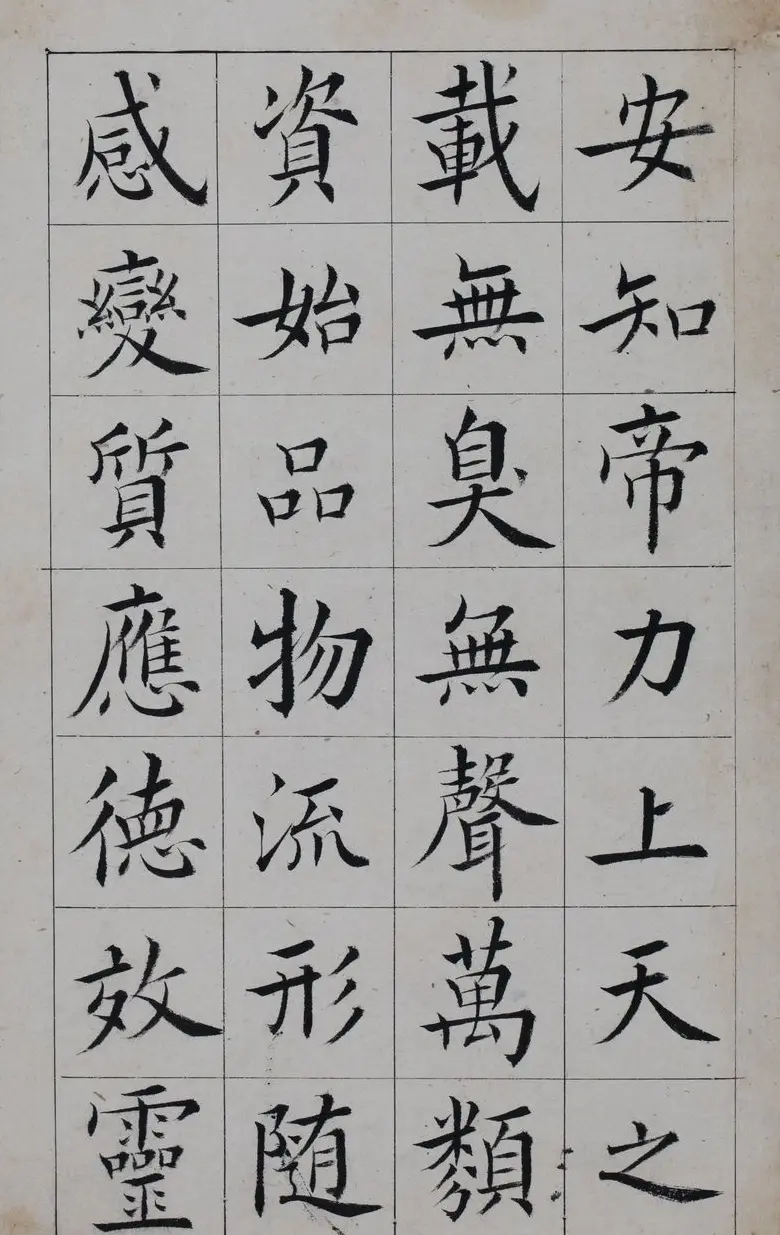 安知帝力上天之
載無臭無聲萬類
資始品物流形隨
感變質應德效靈